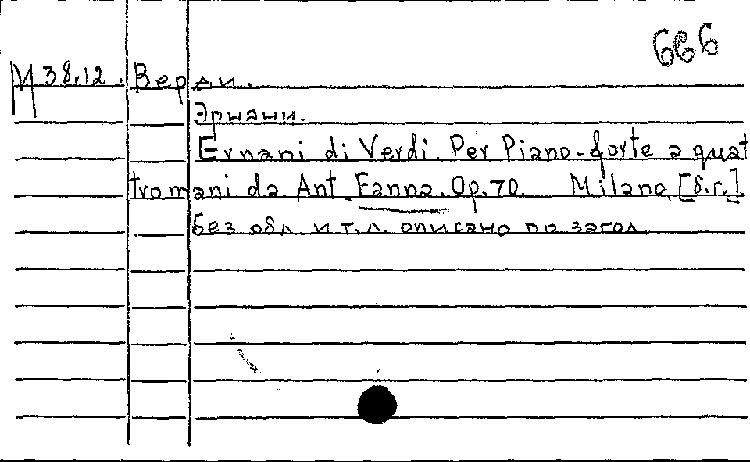 666
М 38.12. Верди.
Эрнани.
Ernani di Verdi. Per Piano-forte a quat
tromani da Ant. Fanna. Op. 70. Milano [s.r.]
Без обл. и т.л. описано по загол.